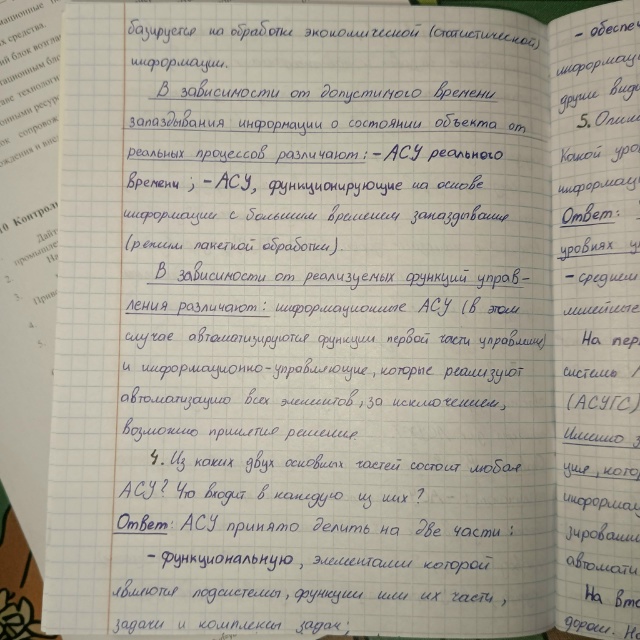 базируется на обработке экономической (статистической)
информации.
В зависимости от допустимого времени
запаздывания информации о состоянии объекта от
реальных процессов различают: - АСУ реального
времени; - АСУ, функционирующие на основе
информации с большим временем запаздывания
(режим пакетной обработки).
В зависимости от реализуемых функций управ-
ления различают: информационные АСУ (в этом
случае автоматизируются функции первой части управления)
и информационно-управляющие, которые реализуют
автоматизацию всех элементов, за исключением,
возможно принятия решения.
4. Из каких двух основных частей состоит любая
АСУ? Что входит в каждую из них?
Ответ: АСУ принято делить на две части:
- функциональную, элементами которой
являются подсистемы, функции или их части,
задачи и комплексы задач;
- обеспеч
информац
другие вид
5. Опиши
Какой уро
информац
Ответ:
уровнях у
- средне
На пер
системы
(АСУГС)
Именно
информац
автомати
На вто